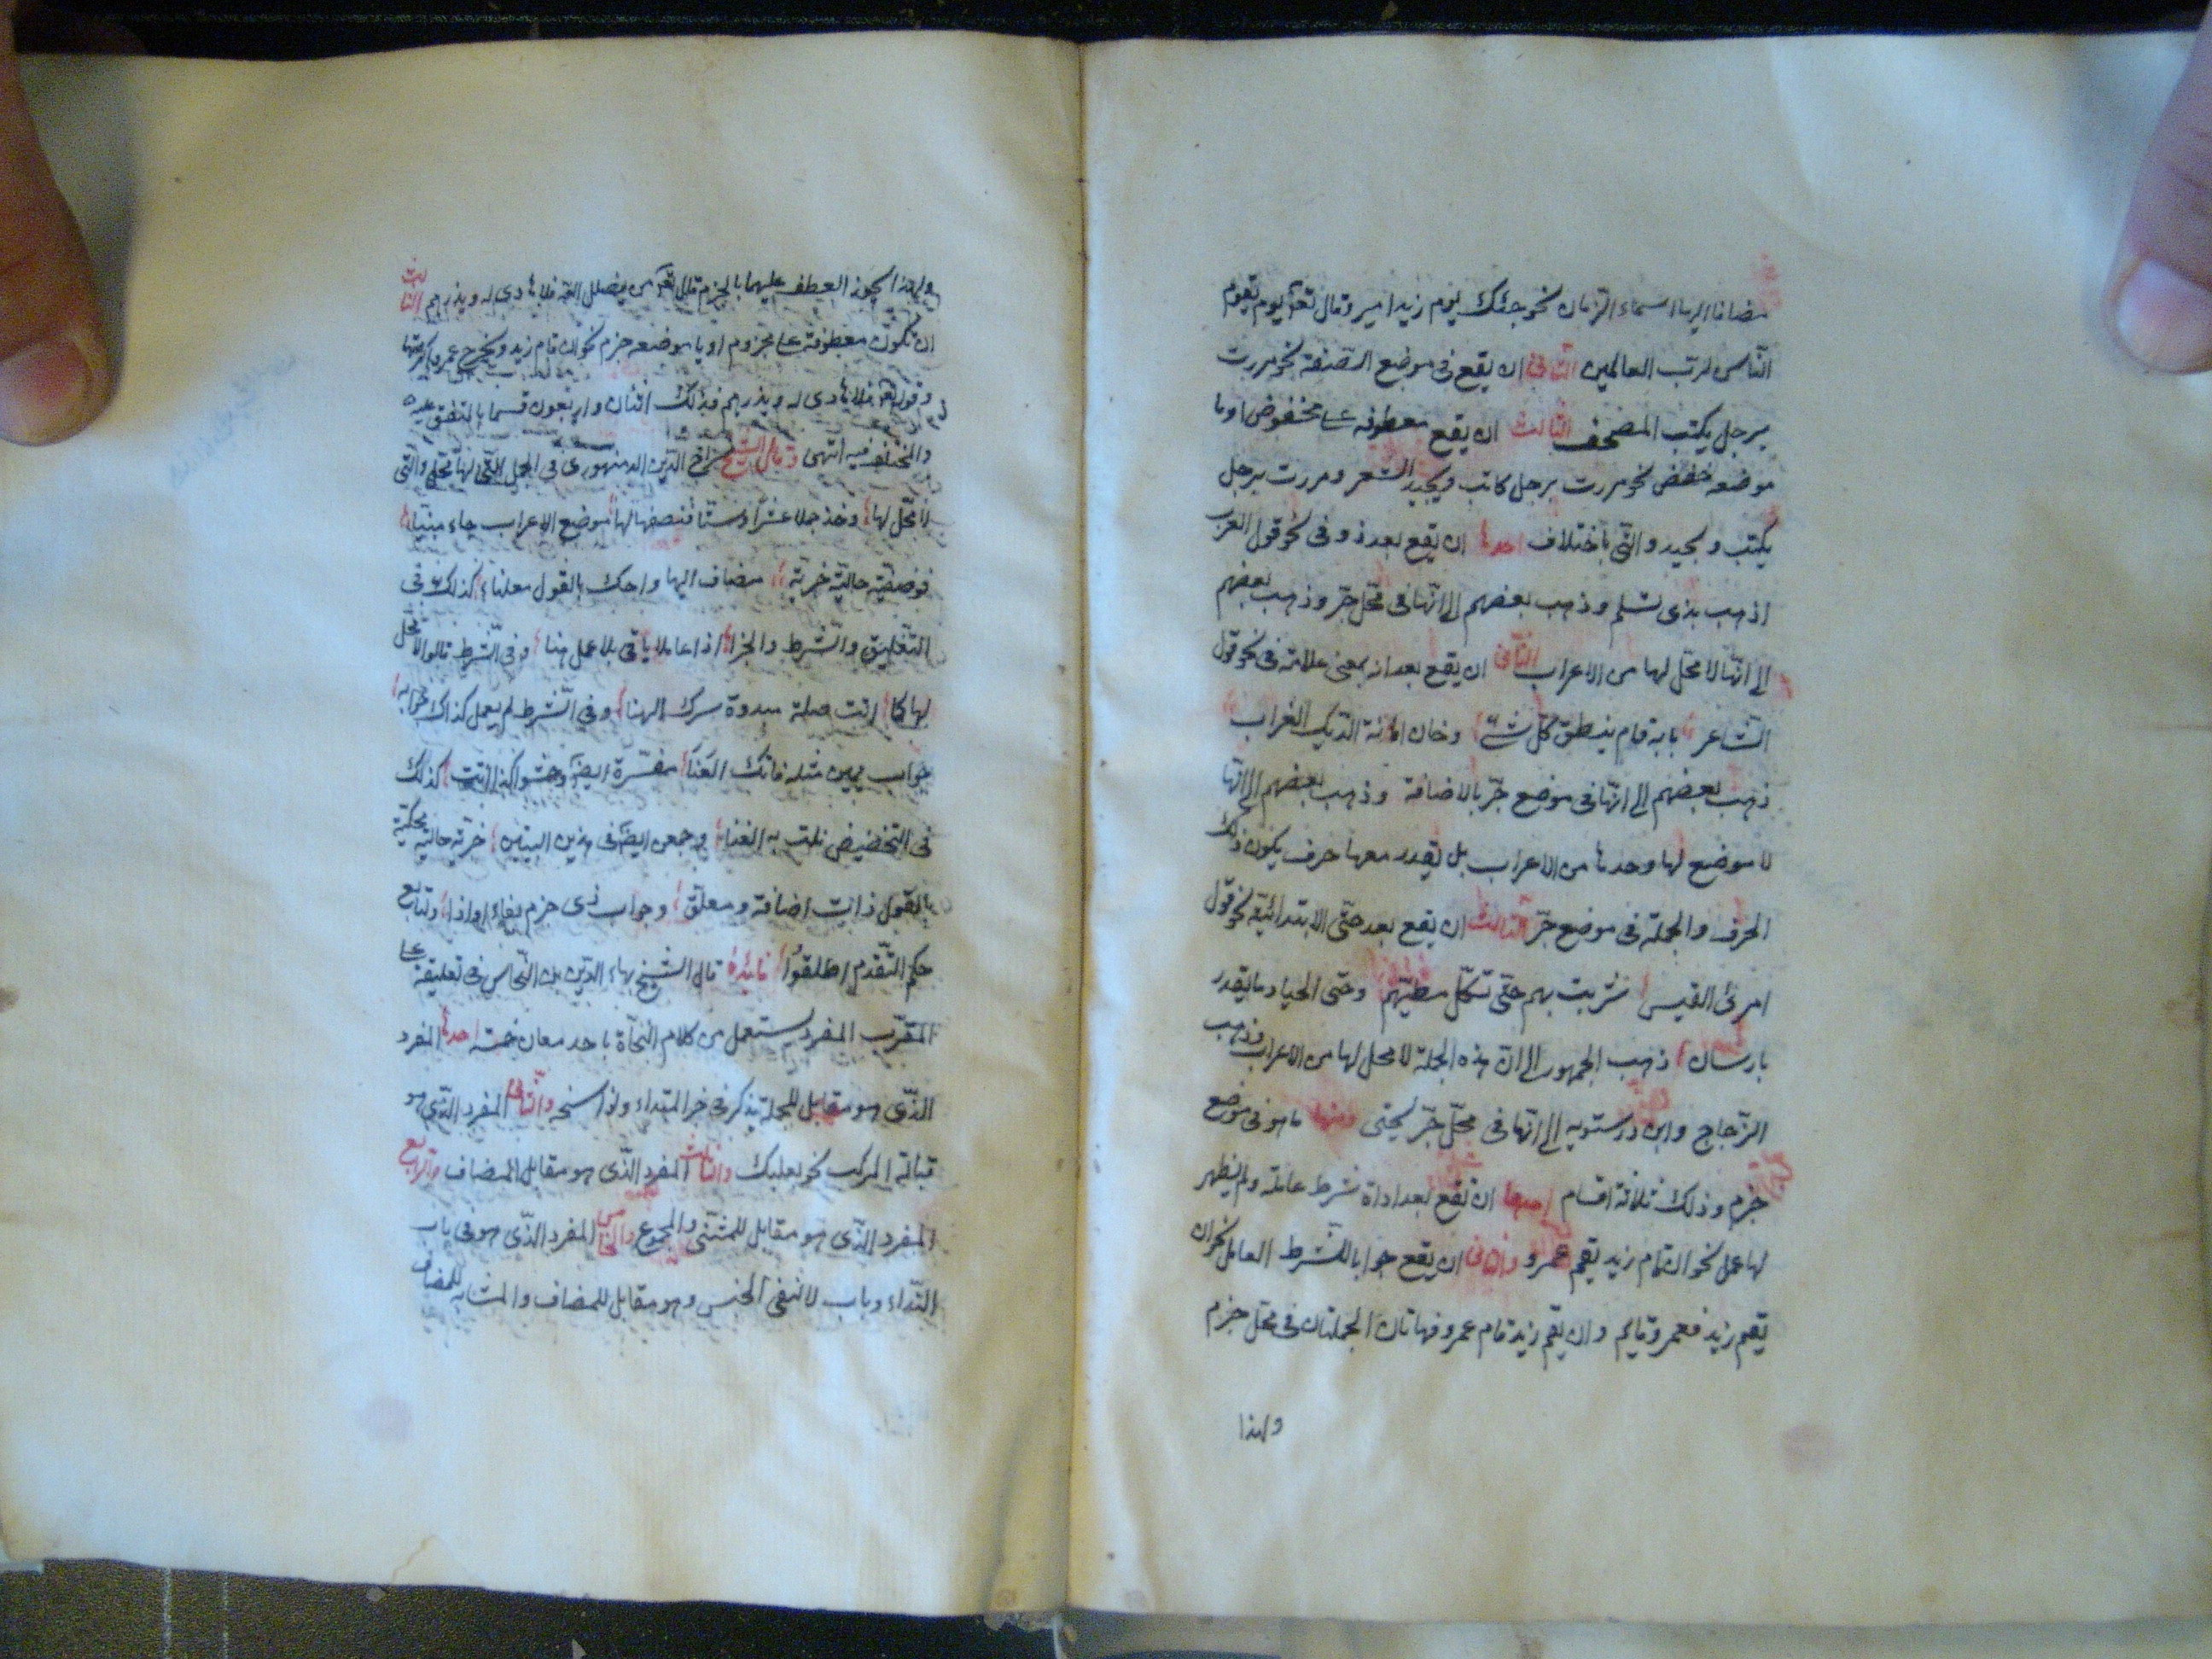 مضافا اليها اسماء الزمان نحو جئتك يوم زيد امير وقال تعالى يوم يقوم
الناس لرب العالمين الثاني ان يقع في موضع الصفة نحو مررت
برجل يكتب المصحف الثالث ان يقع معطوفه على مخفوض او ما
موضعه خفض نحو مررت برجل كاتب ويجيد الشعر ومررت برجل
يكتب ويجيد والتي باختلاف احدها ان يقع بعد ذو في نحو قول العرب
اذهب بذى تسلم وذهب بعضهم الى انها في محل جر وذهب بعضهم
الى انها لا محل لها من الاعراب الثاني ان يقع بعد اية بمعنى علامة في نحو قول
الشاعر باية قام ينطق كل شئ وخان امانة الديك الغراب
ذهب بعضهم الى انها في موضع جر بالاضافة وذهب بعضهم الى انها
لا موضع لها وحدها من الاعراب بل يقدر معها حرف يكون ذلك
الحرف والجملة في موضع جر الثالث ان يقع بعد حتى الابتدائية نحو قول
امرئ القيس شربت بهم حتى تكل مطيهم وحتى الجياد ما يقدن
بارسان ذهب الجمهور الى ان هذه الجملة لا محل لها من الاعراب وذهب
الزجاج وابن درستويه الى انها في محل جر بحتى ومنها ما هو في موضع
جزم وذلك ثلاثة اقسام احدها ان تقع بعد اداة شرط عاملة ولم يظهر
لها عمل نحو ان قام زيد يقم عمرو والثاني ان يقع جوابا للشرط العامل نحو ان
يقم زيد فعمرو قايم وان يقم زيد قام عمرو فهاتان الجملتان في محل جزم
ولهذا
ولهذا يجوز العطف عليهما بالجزم قال تعالى من يضلل الله فلا هادى له ويذرهم الثالث
ان تكون معطوفة على مجزوم او ما موضعه جزم نحو ان قام زيد ويخرج عمرو اكرمتهما
وقوله تعالى فلا هادى له ويذرهم فذلك اثنان واربعون قسما بالمتفق عليه
والمختلف فيه انتهى وقال الشيخ تاج الدين الدمنهورى في الجمل التي لها محل والتي
لا محل لها وخذ جملا عشرا وستا فنصفها لها موضع الاعراب جاء مبينا
فوصفية حالية خبرية مضاف اليها واحك بالقول معلنا كذلك في
التعليق والشرط والجزا اذا عاملا ياتي بلا عمل هنا وفي الشرط قالوا لا محل
لها كما اتت صلة مبدوة سرك الهنا وفي الشرط لم يعمل كذاك جوابه
جواب يمين مثله فاتك العنا مفسرة ايضا وحشوا كذا اتت كذلك
في التخضيض نلت به الغنا وجمعن ايضا في هذين البيتين خبرية حالية محكية
بالقول ذات اضافة ومعلق وجواب ذى جزم بفاء او اذا ولتابع
حكم التقدم اطلقوا فائدة قال الشيخ بهاء الدين بن النحاس في تعليقة على
المقرب المفرد يستعمل من كلام النحاة باحد معان خمسة احدها المفرد
الذى هو مقابل للجملة يذكر في خبر المبتداء ونواسخه والثاني المفرد الذى هو
قبالة المركب نحو بعلبك والثالث المفرد الذى هو مقابل المضاف والرابع
المفرد الذى هو مقابل للمثنى والمجموع والخامس المفرد الذى هو في باب
النداء وباب لا لنفى الجنس وهو مقابل للمضاف والمشابه للمضاف